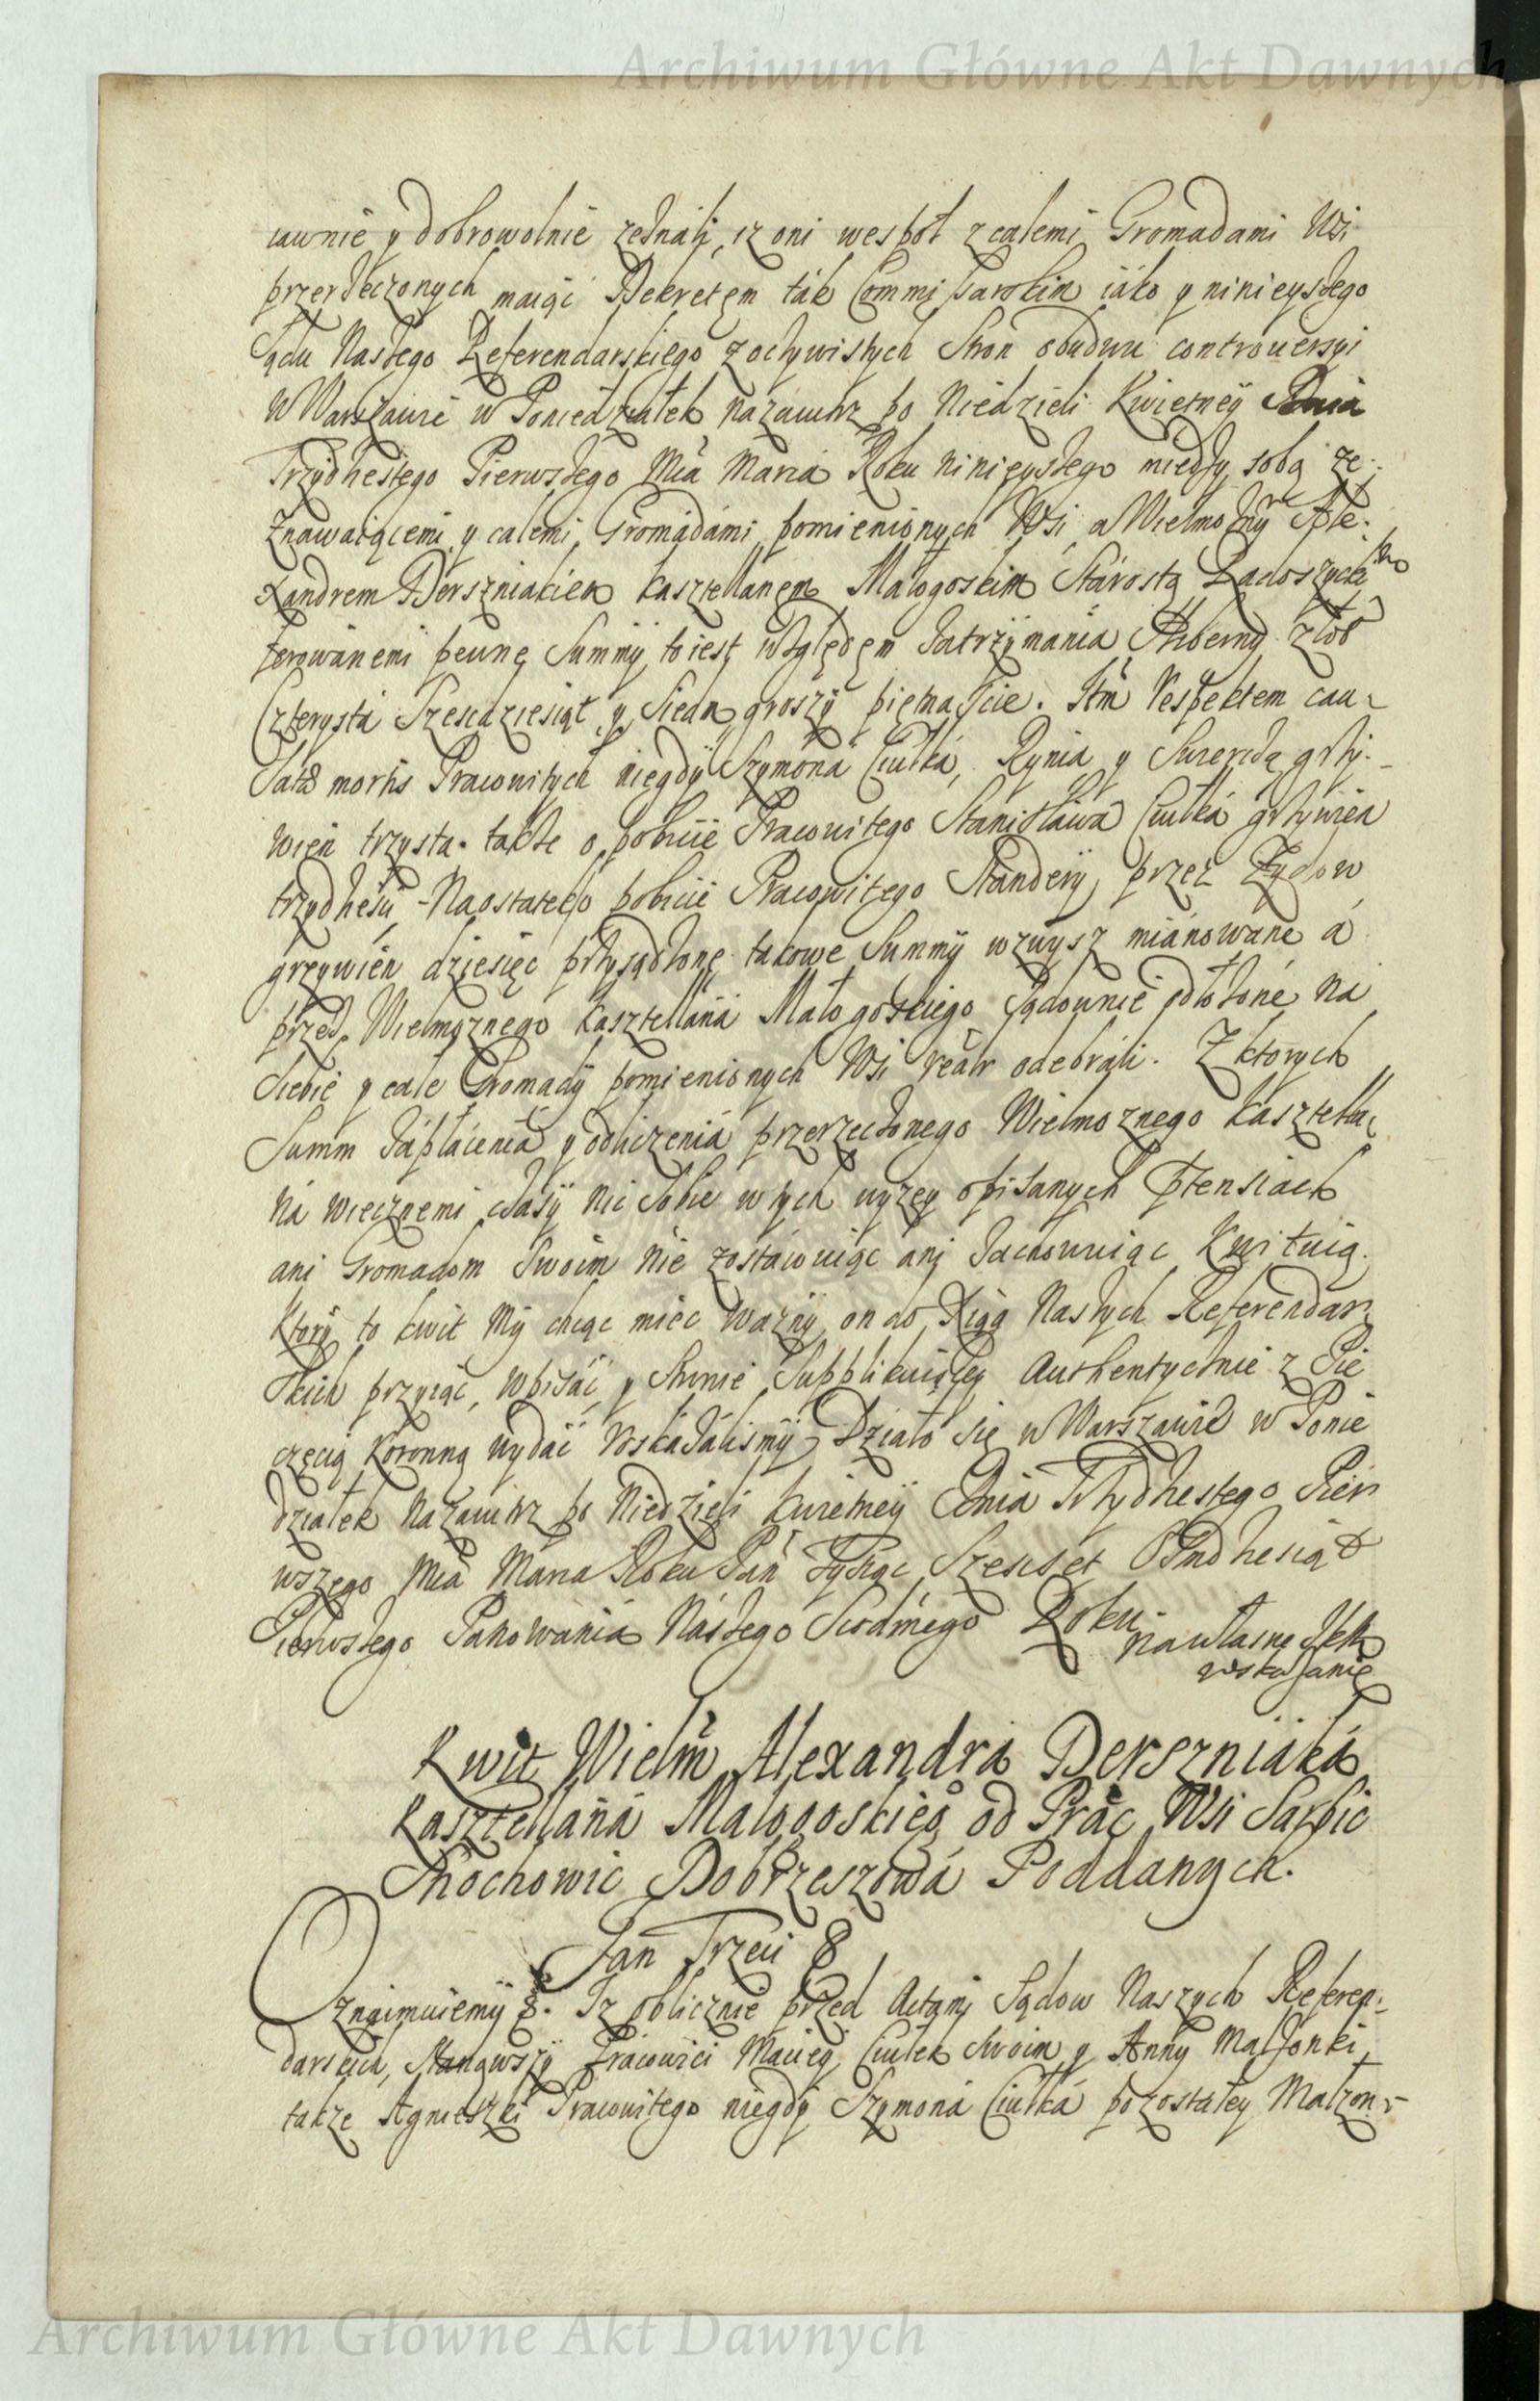 Archiwum Główne Akt Dawnych
iawnie y dobrowolnie zeznali, iz oni wespoł z całemi Gromadami Wsi
przerzeczonych maiąc Dekretem ták Commissarskim iáko y ninieyszego
Sądu Naszego Referendarskiego z oczywistych Stron obudwu controuersyi
w Warszawie w Poniedziałek nazaiutrz po Niedzieli Kwietney Dnia
Trzydziestego Pierwszego Mca Marca Roku ninieyszego miedzy sobą ze-
znawaiącemi y całemi Gromádámi pomienionych Wsi a Wielmożnym Ale-
xandrem Derszniakiem Kasztellanem Małogoskim Stárostą Radoszyckim
ferowanemi pewne Summy, to iest względem zatrzymania Hiberny złot
Czterysta Szescdziesiąt y Siedm groszy piętnascie. Itm Respektem cau-
satae mortis Pracowitych niegdy Szymona Ciułka, Rynia y Swiercza grzy-
wien trzysta. takze o pobicie Pracowitego Stanisława Ciułka grzywien
trzydziesci, Naostatek o pobicie Pracowitego Standery przez Zydow
grzywien dziesięc przysądzone takowe Summy wzwysz miánowáne á
przez Wielmoznego Kasztellana Małogoskiego Sądownie położone na
siebie y całe Gromady pomienionych Wsi realr odebráli. Z ktorych
Summ zapłacenia y odliczenia przerzeczonego Wielmoznego Kasztella-
na wiecznemi czasy nic sobie w tych wyzey opisanych Ptensiach
ani Gromadom Swoim nie zostawuiąc ani zachowuiąc Kwituią.
Ktory to kwit My chcąc miec wazny, on do Xiąg Naszych Referendar-
skich przyiąc, wpisáć, y Stronie Supplikuiącey Authentycznie z Pie
częcią Koronną wydáć roskázálismy. Działo się w Warszawie w Ponie
działek Nazaiutrz po Niedzieli Kwietney Dnia Trzydziestego Pier
wszego Mca Marca Roku Pań Tysiąc Szescset Osmdziesiąt
Pierwszego Panowania Naszego Siodmego Roku.
na własne JKM
wskazanie
Kwit Wielm Alexandra Derszniáká
Kasztellaná Małogoskieo od Prac Wsi Sarbic
Snochowic Dobrzeszowá Poddanych.
Jan Trzeci &
Oznaimuiemy &. Iz oblicznie przed Actami Sądow Naszych Referen-
darskich, Stanąwszy Pracowici Maciey Ciułek swoim y Anny Malzonki,
takze Agnieszki Pracowitego niegdy Szymona Ciułka pozostałey Malzon-
Archiwum Główne Akt Dawnych